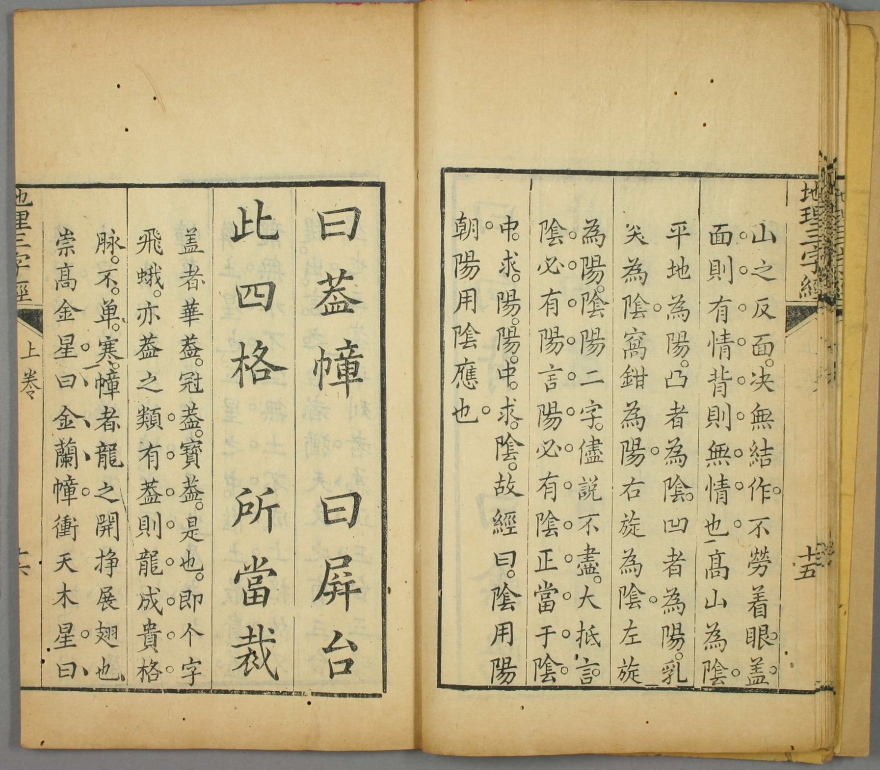 地理三字經
十五
山之反面。决無結作。不勞着眼。盖
面則有情背則無情也。高山為陰。
平地為陽。凸者為陰。凹者為陽。乳
突為陰窩鉗為陽。右旋為陰。左旋
為陽。陰陽二字。儘說不盡。大抵言。
陰必有陽言陽必有陰正當于陰。
中。求。陽。陽。中。求。陰。故經曰。陰用陽
朝陽用陰應也。
曰葢幛 曰屏台
此四格 所當裁
盖者華葢。冠葢。寳葢。是也。即个字
飛蛾。亦葢之類有葢則龍成貴格
脉。不。单。寒。幛者龍之開挣展翅也
崇高金星曰金蘭幛衝天木星曰
地理三字經
上卷
十六